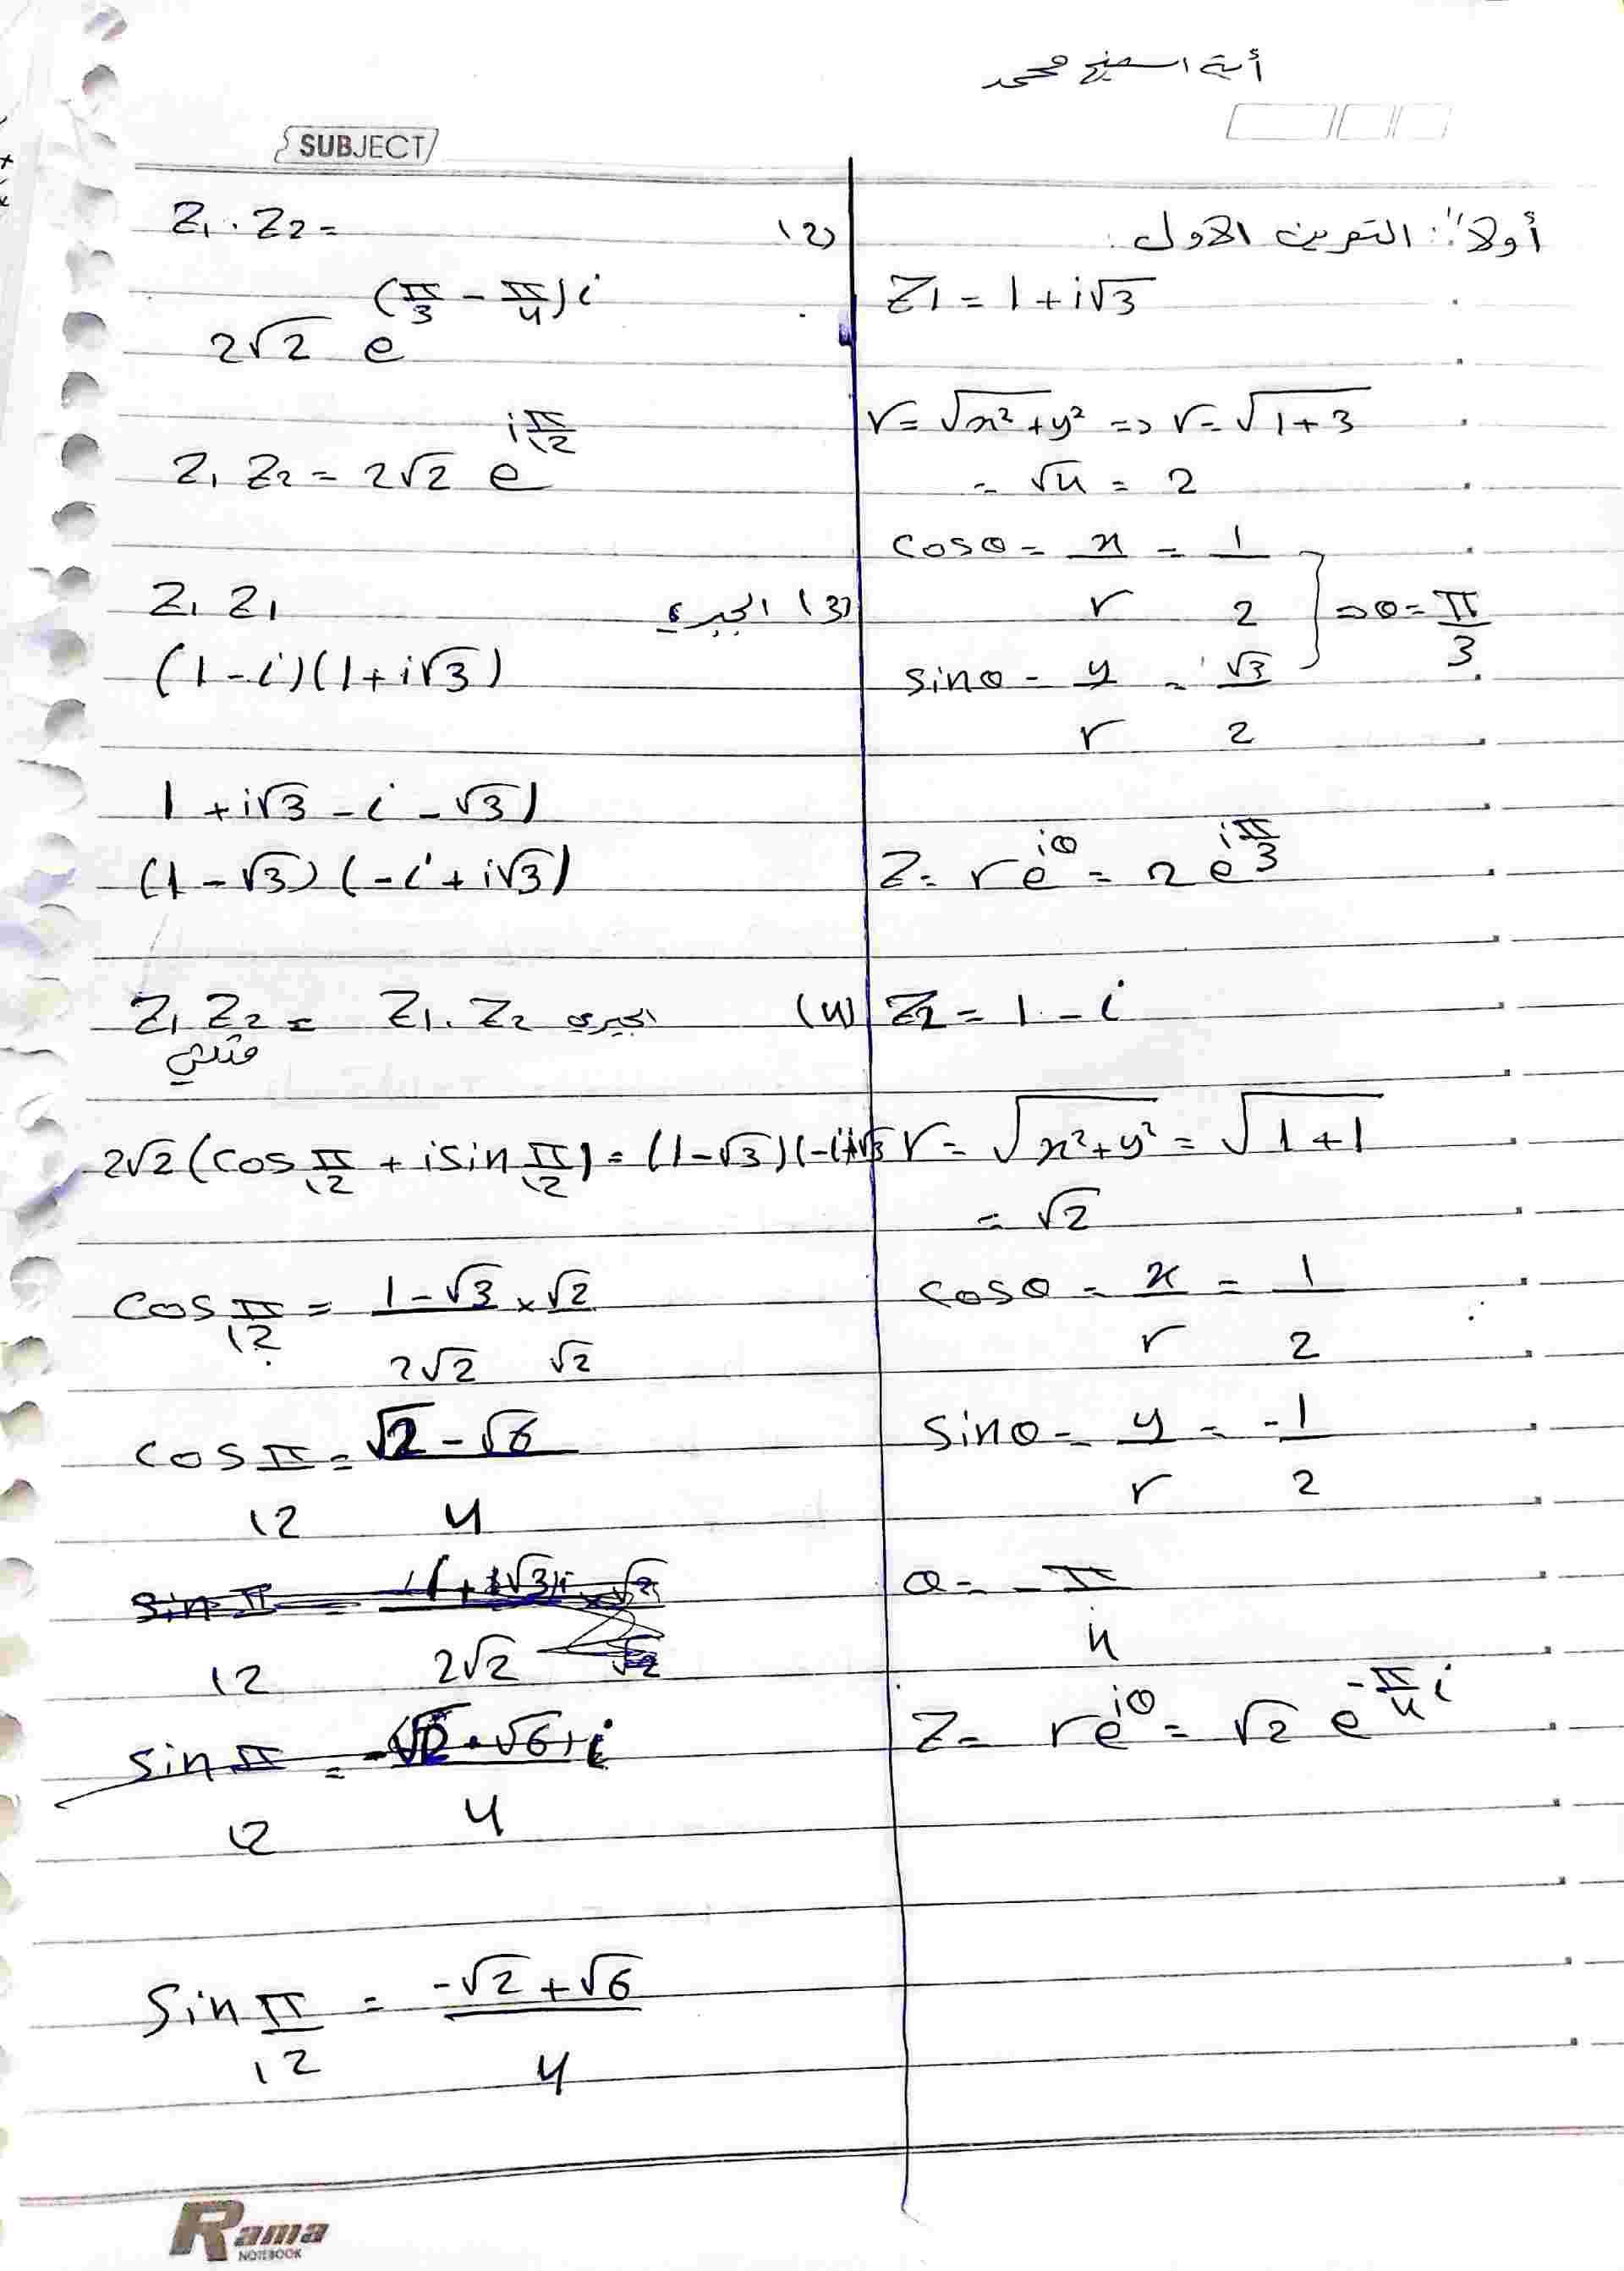 أية اسميح محمد
SUBJECT
أولاً: التمرين الاول:
Z1 = 1 + i√3
r = √x² + y² => r = √1 + 3
= √4 = 2
cosθ = x/r = 1/2
sinθ = y/r = √3/2
} => θ = π/3
Z = r e^iθ = 2 e^iπ/3
Z2 = 1 - i
r = √x² + y² = √1 + 1
= √2
cosθ = x/r = 1/2
sinθ = y/r = -1/2
θ = -π/4
Z = r e^iθ = √2 e^-π/4 i
(2)
Z1 . Z2 =
2√2 e^(π/3 - π/4)i
Z1 Z2 = 2√2 e^iπ/12
(3) الجبري
Z1 Z1
(1 - i)(1 + i√3)
1 + i√3 - i - √3)
(1 - √3) (-i + i√3)
(4)
Z1 Z2 = Z1 . Z2 الجبري
مثلثي
2√2 (cos π/12 + i sin π/12) = (1 - √3)(-i + i√3
cos π/12 = 1 - √3/2√2 × √2/√2
cos π/12 = √2 - √6/4
sin π/12 = -√2 + √6/4
Rama
NOTEBOOK